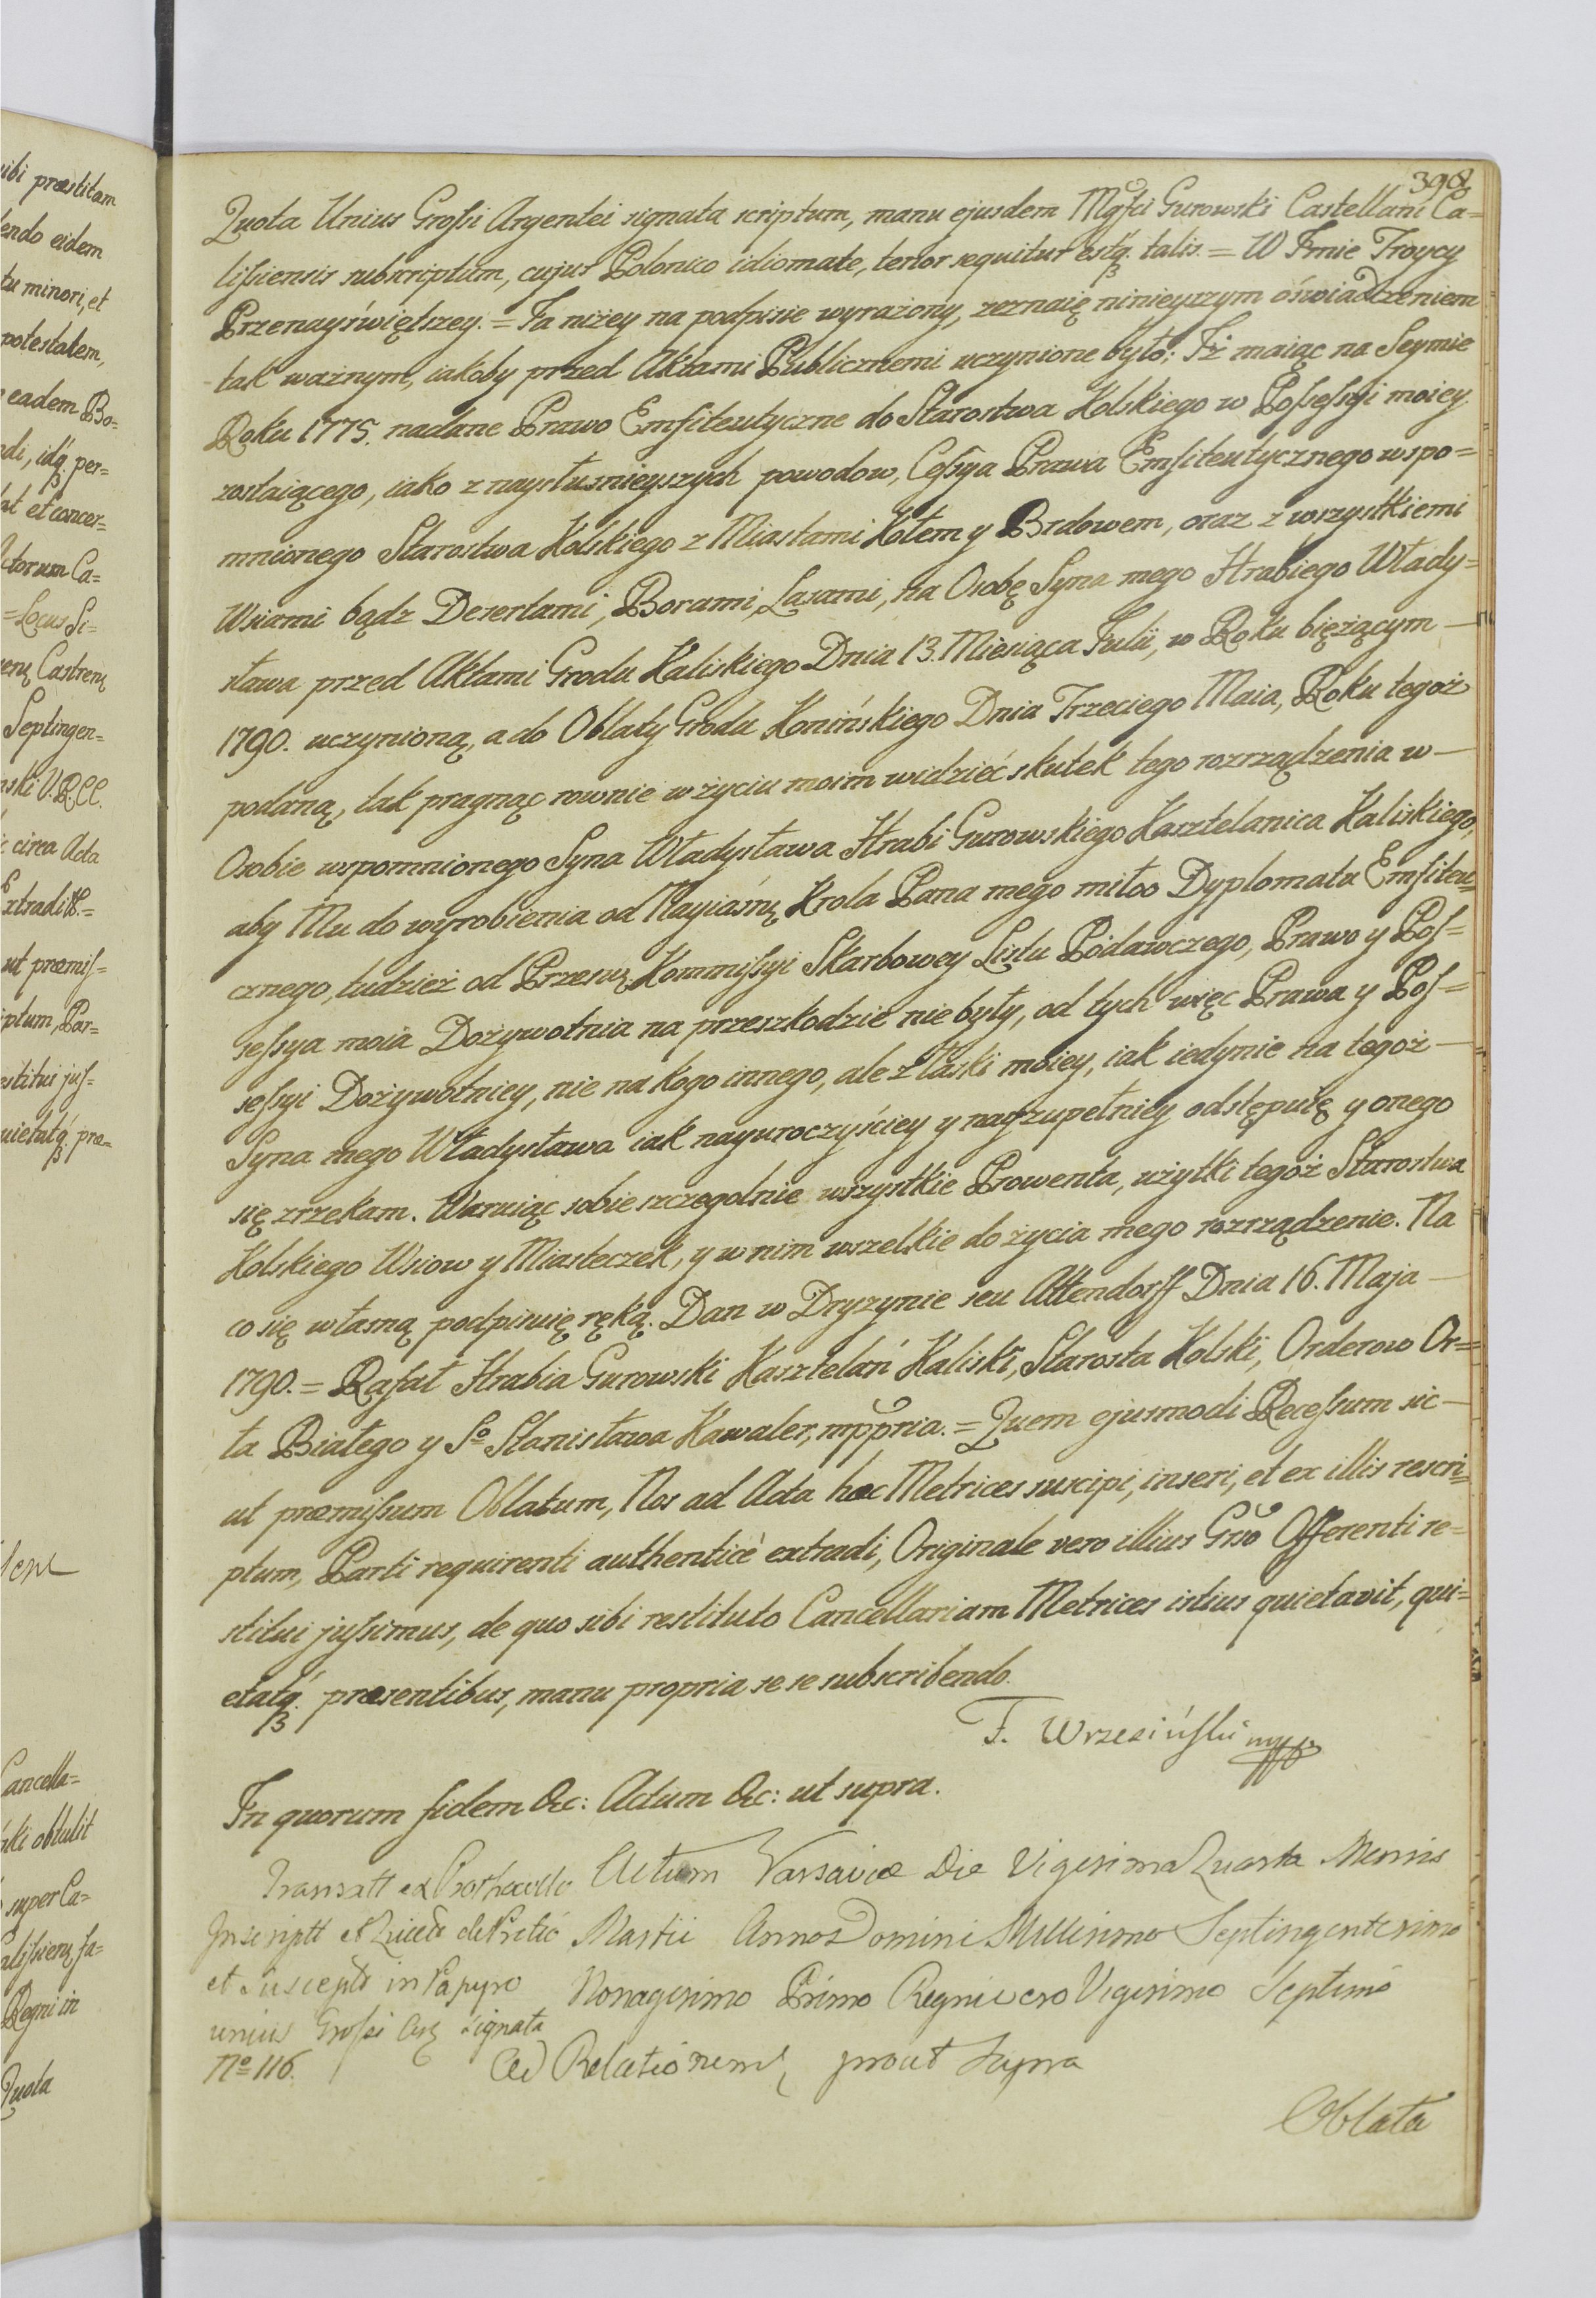 398
Quota Unius Grossi Argentei signata scriptum, manu ejusdem Mgfci Gurowski Castellani Ca=
lissiensis subscriptum, cujus Polonico idiomate, tenor sequitur estq. talis. = W Jmie Troycy
Przenayświętszey. = Ja niżey na podpisie wyrażony, zeznaię ninieyszym óświadczeniem
tak ważnym, iakoby przed Aktami Publicznemi uczynione było; Jż maiąc na Seymie
Roku 1775. nadane Prawo Emfiteutyczne do Starostwa Kolskiego w Possessyi moiey
zostaiącego, iako z naysłusznieyszych powodow, Cessya Prawa Emfiteutycznego wspo=
mnionego Starostwa Kolskiego z Miastami Kołem y Brdowem, oraz z wszystkiemi
Wsiami bądz Dezertami, Borami, Lasami, na Osobę Syna mego Hrabiego Włady=
sława przed Aktami Grodu Kaliskiego Dnia 13. Miesiąca Julii, w Roku bieżącym —
1790. uczynioną, a do Oblaty Grodu Konińskiego Dnia Trzeciego Maia, Roku tegoż
podaną, tak pragnąc rownie w życiu moim widzieć skutek tego rozrządzenia w —
Osobie wspomnionego Syna Władysława Hrabi Gurowskiego Kasztelanica Kaliskiego,
aby Mu do wyrobienia od Nayiaśnę Krola Pana mego miłoo Dyplomatu Emfiteu=
cznego, tudzież od Przesw. Kommissyi Skarbowey Listu Podawczego, Prawo y Pos=
sessya moia Dożywotnia na przeszkodzie nie były, od tych więc Prawa y Pos=
sessyi Dożywotniey, nie na kogo innego, ale z Łaski moiey, iak iedynie na tegoż —
Syna mego Władysława iak nayuroczyściey y nayzupełniey odstępuię y onego
się zrzekam. Waruiąc sobie szczegolnie wszystkie Prowenta, użytki tegoż Starostwa
Kolskiego Wsiow y Miasteczek, y w nim wszelkie do życia mego rozrządzenie. Na
co się własną podpisuię ręką. Dan w Dryzynie seu Attendorff Dnia 16. Maja —
1790. = Rafał Hrabia Gurowski Kasztelań Kaliski, Starosta Kolski, Orderow Or=
ła Białego y So Stanisława Kawaler, mppria. = Quem ejusmodi Recessum sic —
ut præmissum Oblatum, Nos ad Acta hæc Metrices suscipi, inseri, et ex illis rescri=
ptum, Parti requirenti authenticè extradi, Originale vero illius Gnō Offerenti re=
stitui jussimus, de quo sibi restituto Cancellariam Metrices istius quietavit, qui=
etatq. præsentibus, manu propria se se subscribendo.
F. Wrzesiński mpp
In quorum fidem &c: Actum &c: ut supra.
Actum Varsaviæ Die Vigesima Quarta Mensis
Martii Anno Domini Millesimo Septingentesimo
Nonagesimo Primo Regni vero Vigesimo Septimo
Ad Relationem prout Supra
Transatt ex Prothocollo
Inscriptt et
et Suscepto in Papyro
unius Grossi Arg signata
No 116.
Oblata